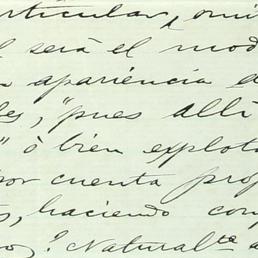 rticular, omi
l será el mod
n apariencia d
les, "pues alli
" ó bien explota
por cuenta prop
s, haciendo con
o? Natural.te a